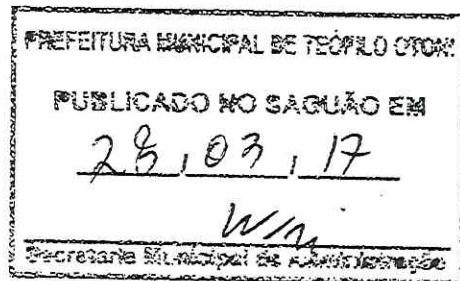 PREFEITURA MUNICIPAL DE TEÓFILO OTONI
PUBLICADO NO SAGUÃO EM
28, 03, 17
Secretaria Municipal de Administração